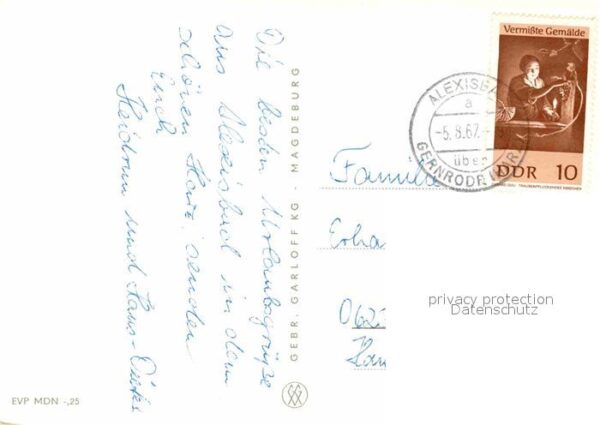 Die besten Urlaubsgrüße
aus Alexisbad in dem
schönen Harz senden
Euch
Heidrun und Hans-Dieter
GEBR. GARLOFF KG - MAGDEBURG
EVP MDN -,25
Vermißte Gemälde
DDR 10
ALEXISBA
a
-5.8.67.-
über
GERNRODE (HARZ
Familie
Erha
062
privacy protection
Datenschutz